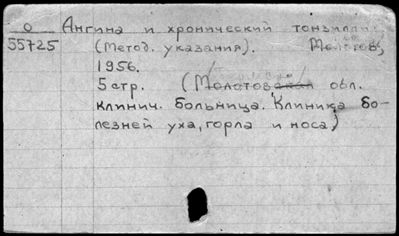 О Ангина и хронический тонзиллит
55725 (Метод. указания). Молотов,
1956.
5 стр. (Молотовская обл.
клинич. больница. Клиника бо-
лезней уха, горла и носа)